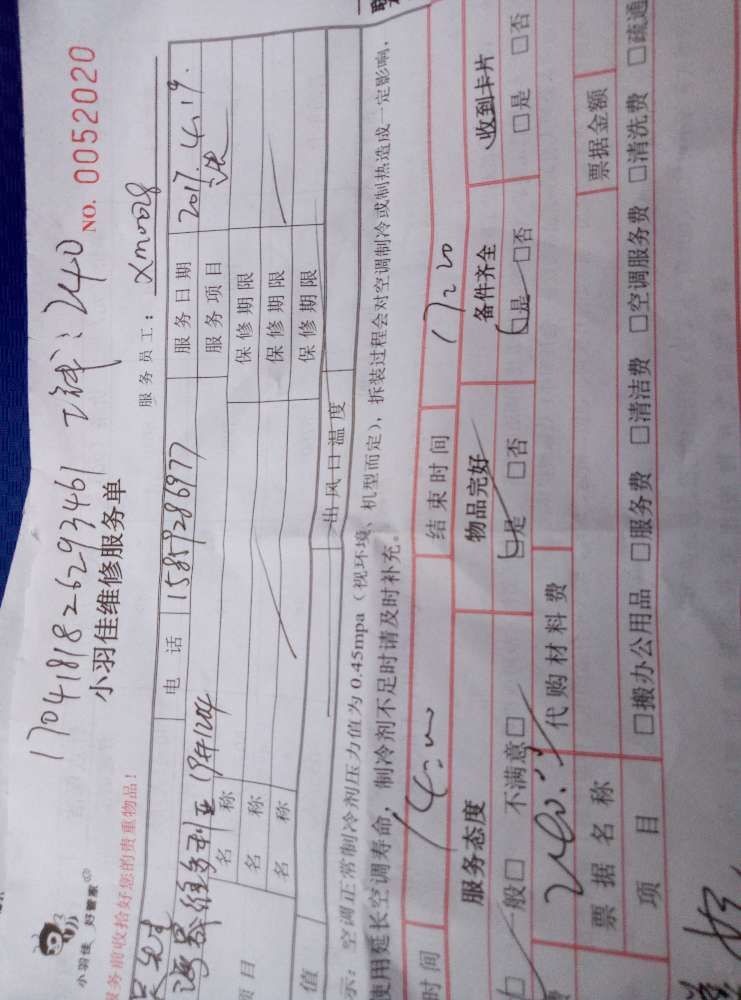 1704181826293461 工诚:240
小羽佳 好管家
小羽佳维修服务单
NO. 0052020
服务前收拾好您的贵重物品!
服务员工: Xm0028
电话 15859286977 服务日期 2017.4.19.
海景维多利亚 服务项目
名称 保修期限
名称 保修期限
项目 名称 保修期限
值 出风口温度
示:空调正常制冷剂压力值为0.45mpa(视环境、机型而定),拆装过程会对空调制冷或制热造成一定影响,
使用延长空调寿命,制冷剂不足时请及时补充。
时间 14:00 结束时间 17:20
服务态度 物品完好 备件齐全 收到卡片
□一般□ 不满意□ □是 □否 □是 □否 □是 □否
240. 代购材料费
票据名称 票据金额
项目 □搬办公用品 □服务费 □清洁费 □空调服务费 □清洗费 □疏通